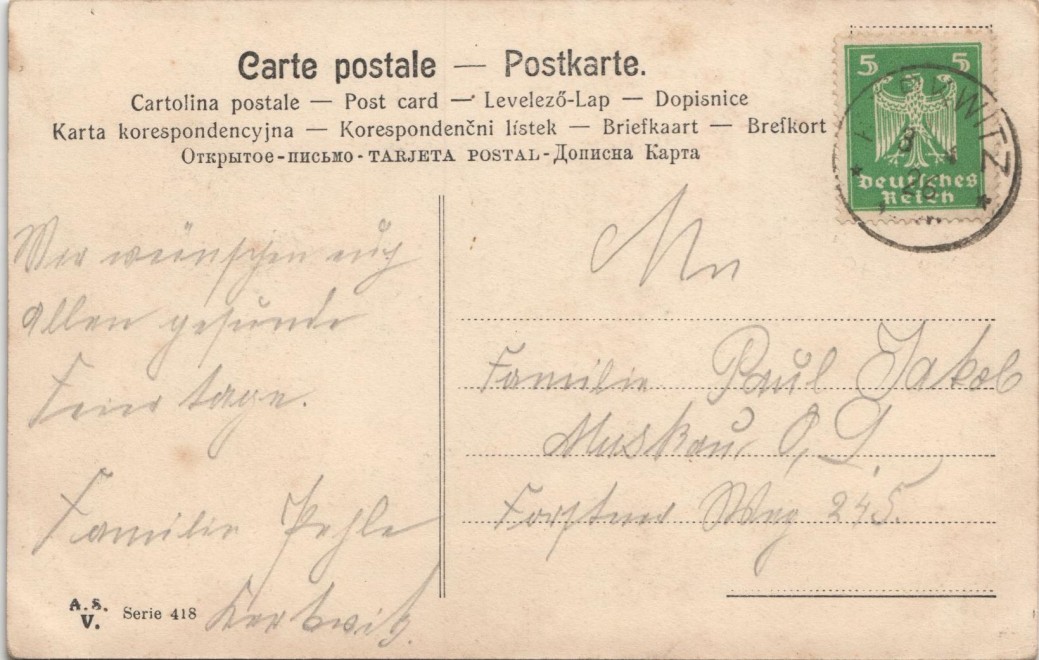 Carte postale — Postkarte.
Cartolina postale — Post card — Levelező-Lap — Dopisnice
Karta korespondencyjna — Korespondenčni lístek — Briefkaart — Brefkort
Открытое-письмо - TARJETA POSTAL - Дописна Карта
5 5
Deutsches
Reich
8 26
Wir wünschen euch
allen gesunde
Feiertage.
Familie
A. S. V. Serie 418
An
Familie Paul Jakob
Muskau, O, L.
Forstner Weg 245.